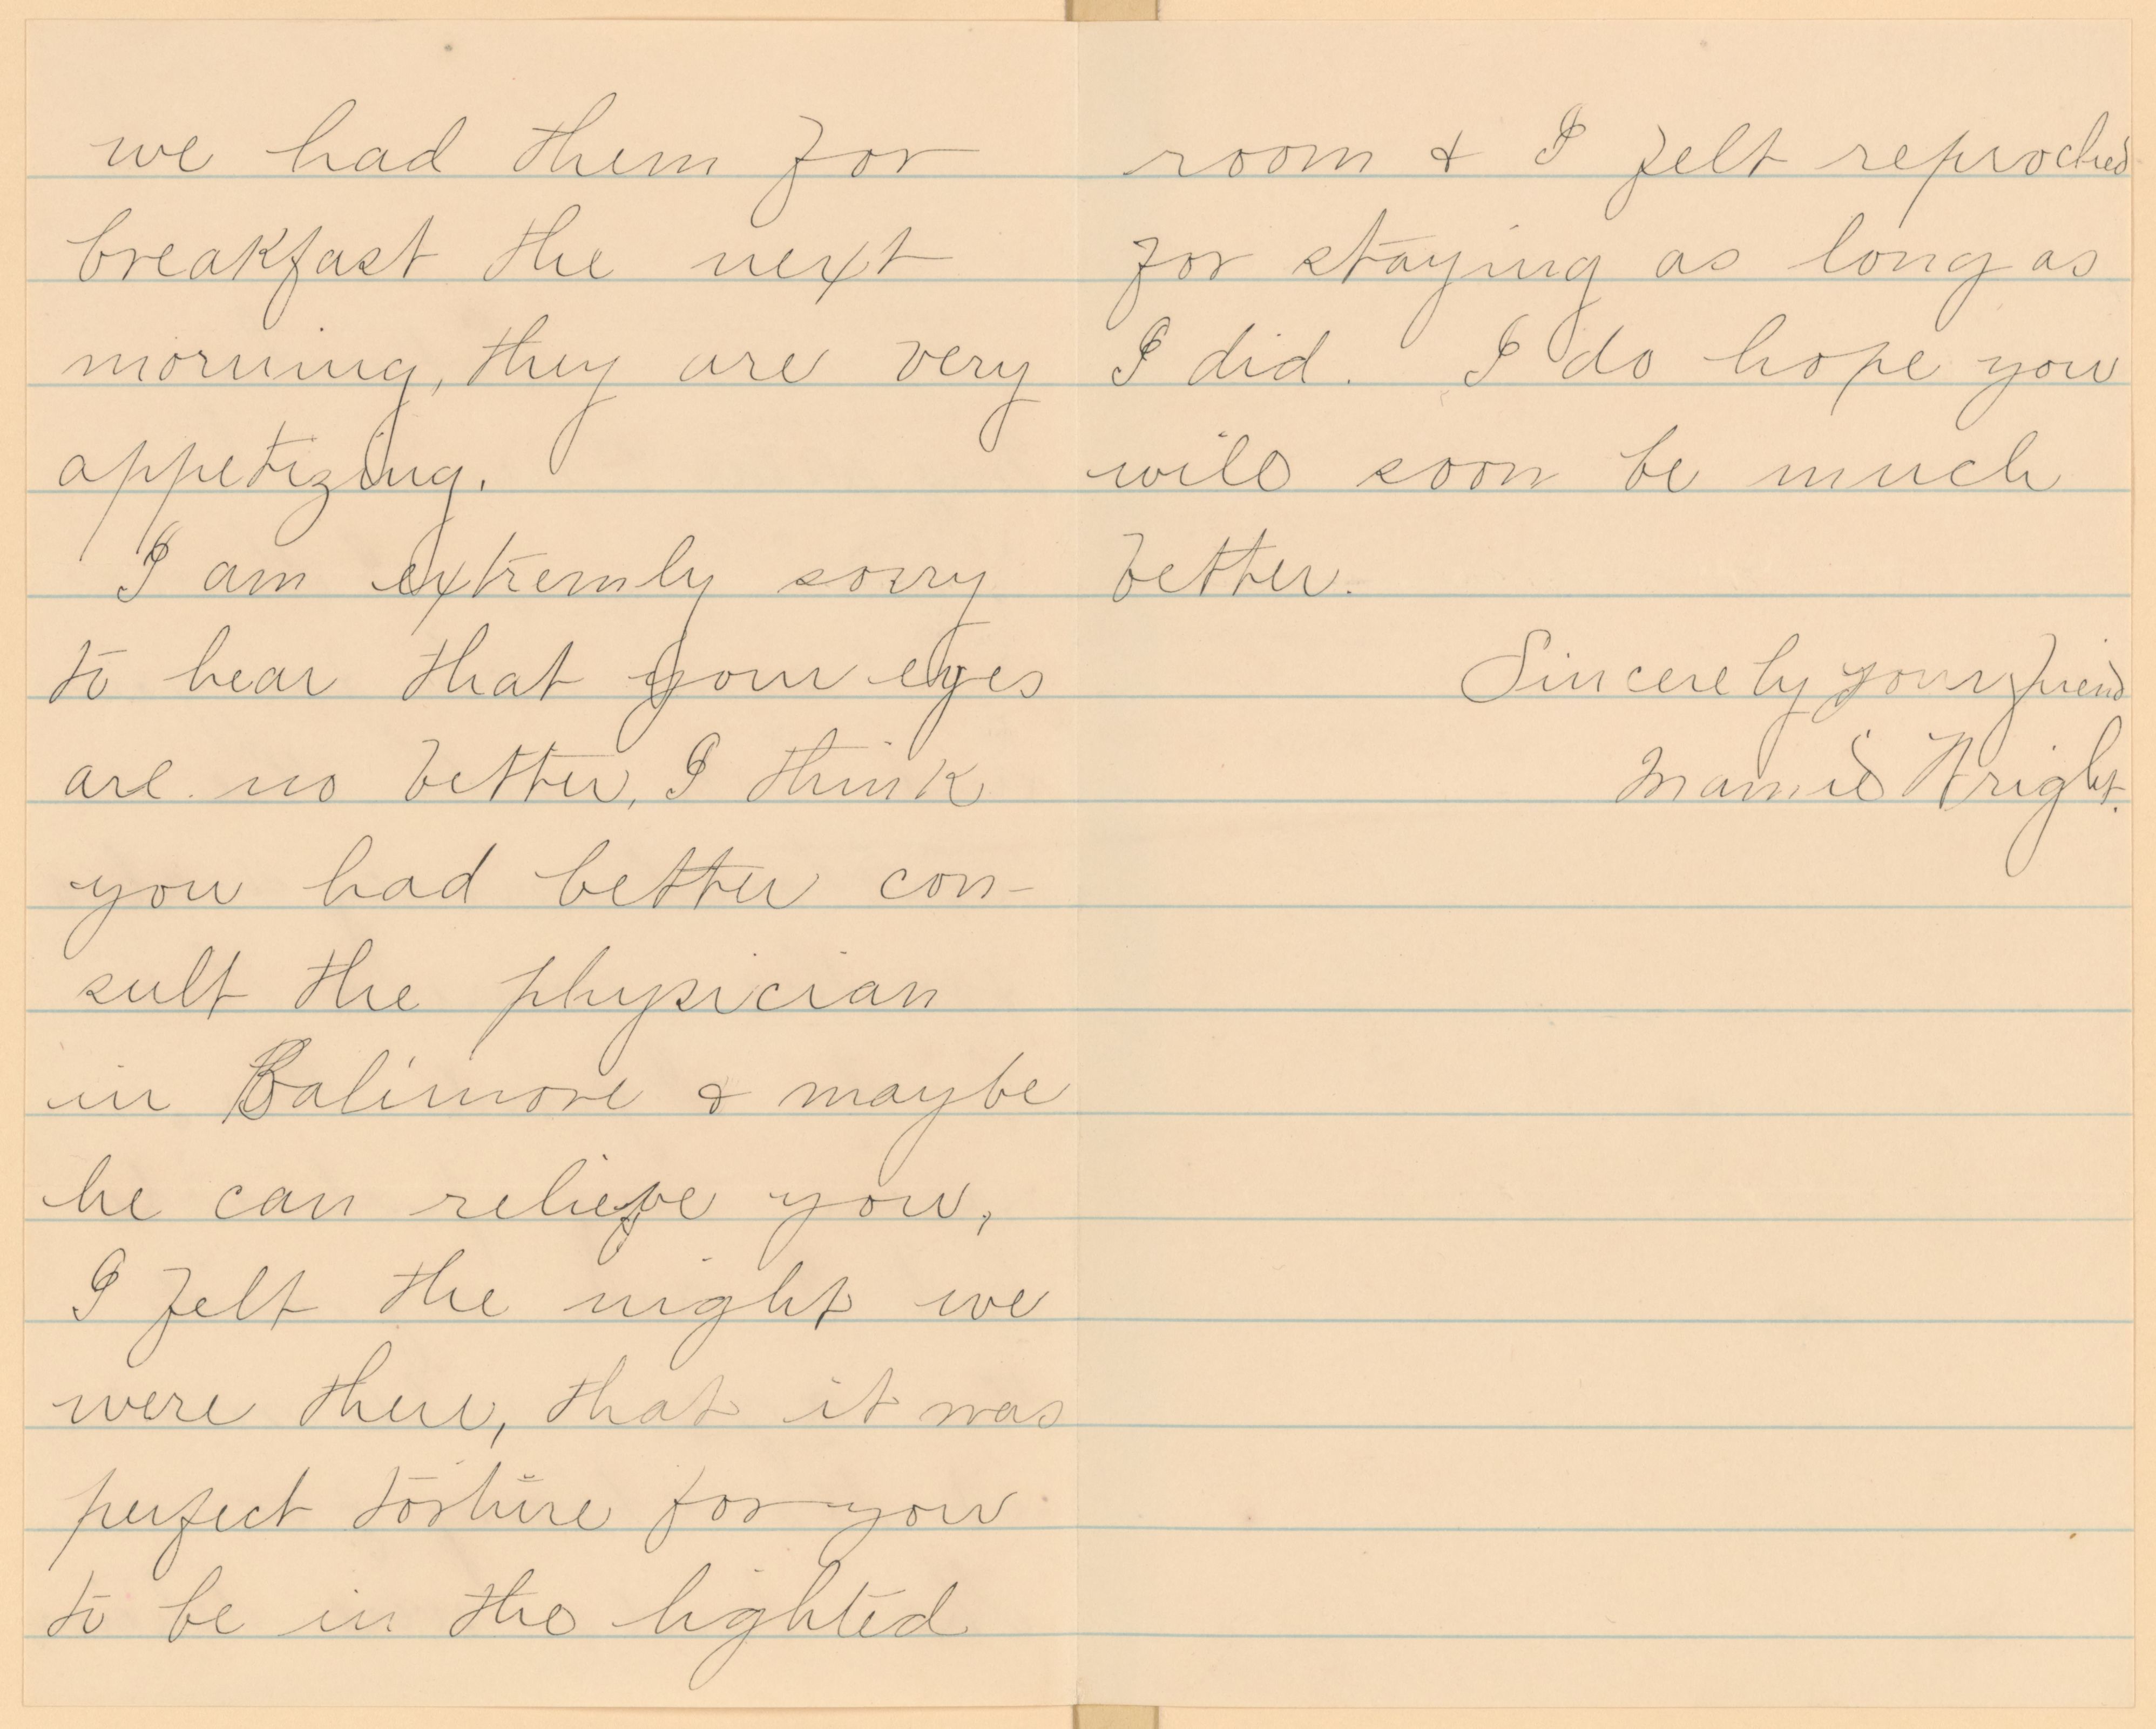 we had them for
breakfast the next
morning, they are very
appetizing.
I am extremly sorry
to hear that your eyes
are no better, I think
you had better con-
sult the physician
in Balimore & maybe
he can relieve you,
I felt the night we
were there, that it was
perfect torture for you
to be in the lighted
room & I felt reproched
for staying as long as
I did. I do hope you
will soon be much
better.
Sincerely your friend
Mamie Wright.